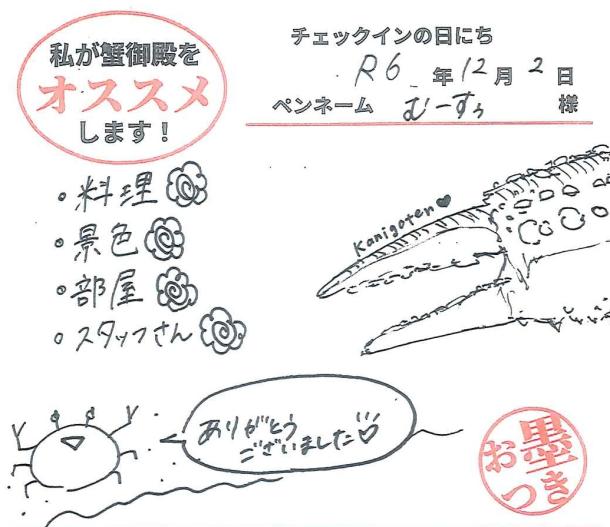 私が蟹御殿を
オススメ
します！
チェックインの日にち
R6年12月2日
ペンネーム むーすぅ 様
・料理
・景色
・部屋
・スタッフさん
Kanigoten♥
ありがとう
ございました
お墨
つき